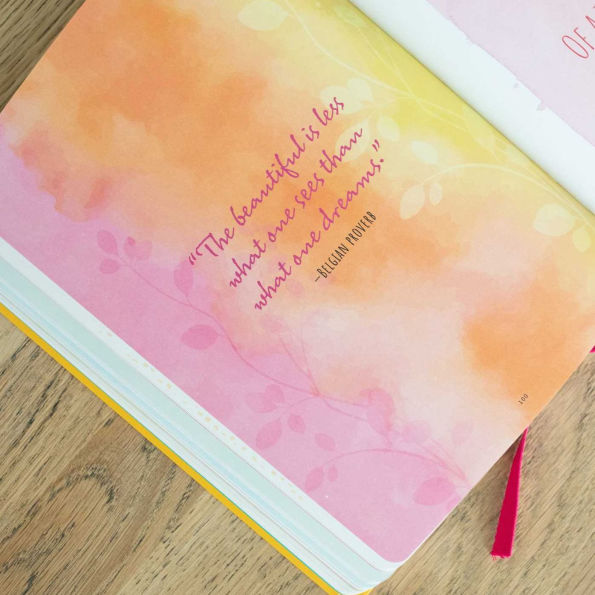 "The beautiful is less
what one sees than
what one dreams."
—BELGIAN PROVERB
100
OF A